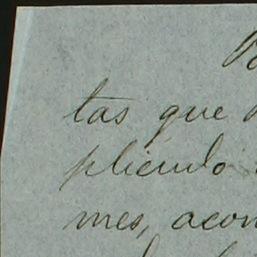 tas que
pliendo
mes, acon